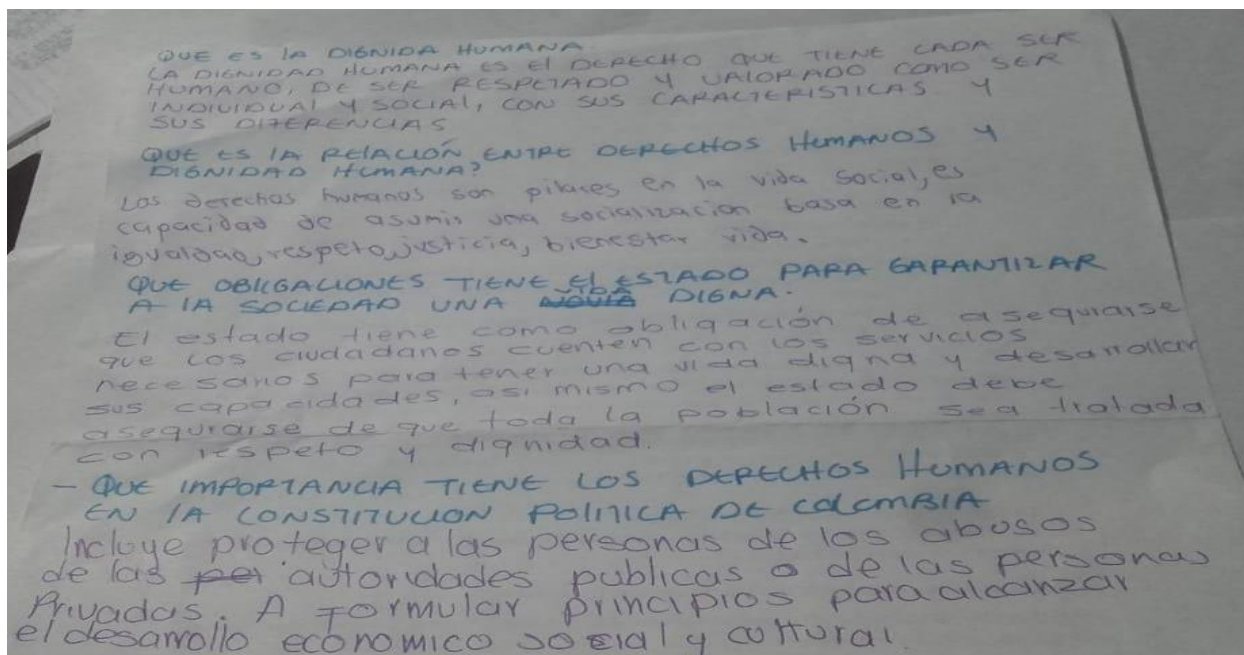 QUE ES lA DIGNIDA HUMANA.
LA DIGNIDAD HUMANA ES El DERECHO QUE TIENE CADA SER
HUMANO, DE SER RESPETADO Y VALORADO COMO SER
INDIVIDUAl Y SOCIAl, CON SUS CARACTERISTICAS Y
SUS DIFERENCIAS
QUE ES lA RElACIÓN ENTRE DERECHOS HUMANOS Y
DIGNIDAD HUMANA?
Los derechos humanos son pilares en la vida social, es
capacidad de asumir una socialización basa en la
igualdad, respeto, justicia, bienestar vida.
QUE OBlIGACIONES TIENE El ESTADO PARA GARANTIZAR
A lA SOCIEDAD UNA VIDA DIGNA.
El estado tiene como obligación de asegurarse
que los ciudadanos cuenten con los servicios
necesarios para tener una vida digna y desarrollar
sus capacidades, asi mismo el estado debe
asegurarse de que toda la población sea tratada
con respeto y dignidad.
- QUE IMPORTANCIA TIENE LOS DERECHOS HUMANOS
EN lA CONSTITUCION POlITICA DE COlOMBIA
Incluye proteger a las personas de los abusos
de las autoridades publicas o de las personas
Privadas. A Formular principios para alcanzar
el desarrollo economico social y cultural